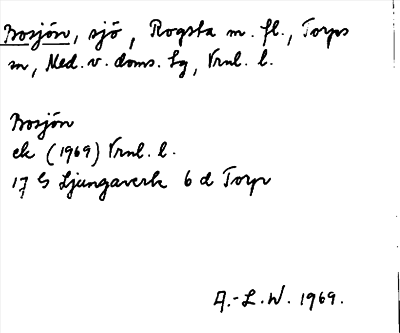 Bosjön, sjö, Rogsta m. fl., Torps
sn, Med. v. doms. lg, Vrnl. l.
Bosjön
ek (1969) Vrnl. l.
17 G Ljungaverk 6 d Torp
A.-L. W. 1969.